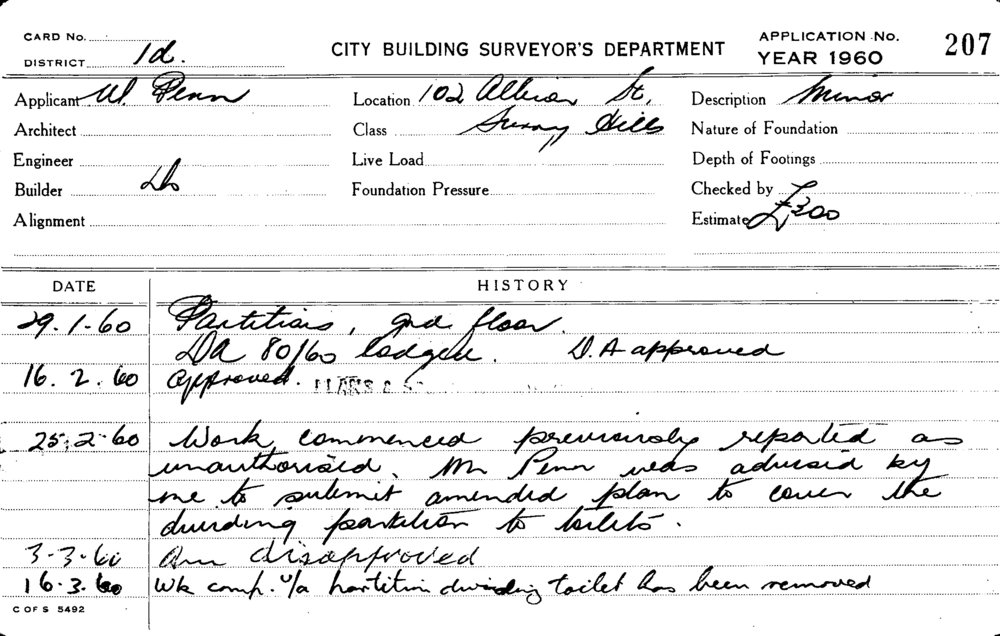 CARD No.
DISTRICT 1d.
CITY BUILDING SURVEYOR'S DEPARTMENT
APPLICATION No.
YEAR 1960
207
Applicant W. Penn
Location 102 Albion St,
Description Minor
Architect
Class Surry Hills
Nature of Foundation
Engineer
Live Load
Depth of Footings
Builder Do
Foundation Pressure
Checked by
Alignment
Estimate £300
DATE HISTORY
29.1.60 Partitions, gnd floor.
DA 80/60 lodged. D.A approved
16.2.60 Approved.
25.2.60 Work commenced previously reported as
unauthorised. Mr Penn was advised by
me to submit amended plan to cover the
dividing partition to toilets.
3-3-60 disapproved
16.3.60 Wk comp. u/a partition dividing toilet has been removed
C OF S 5492